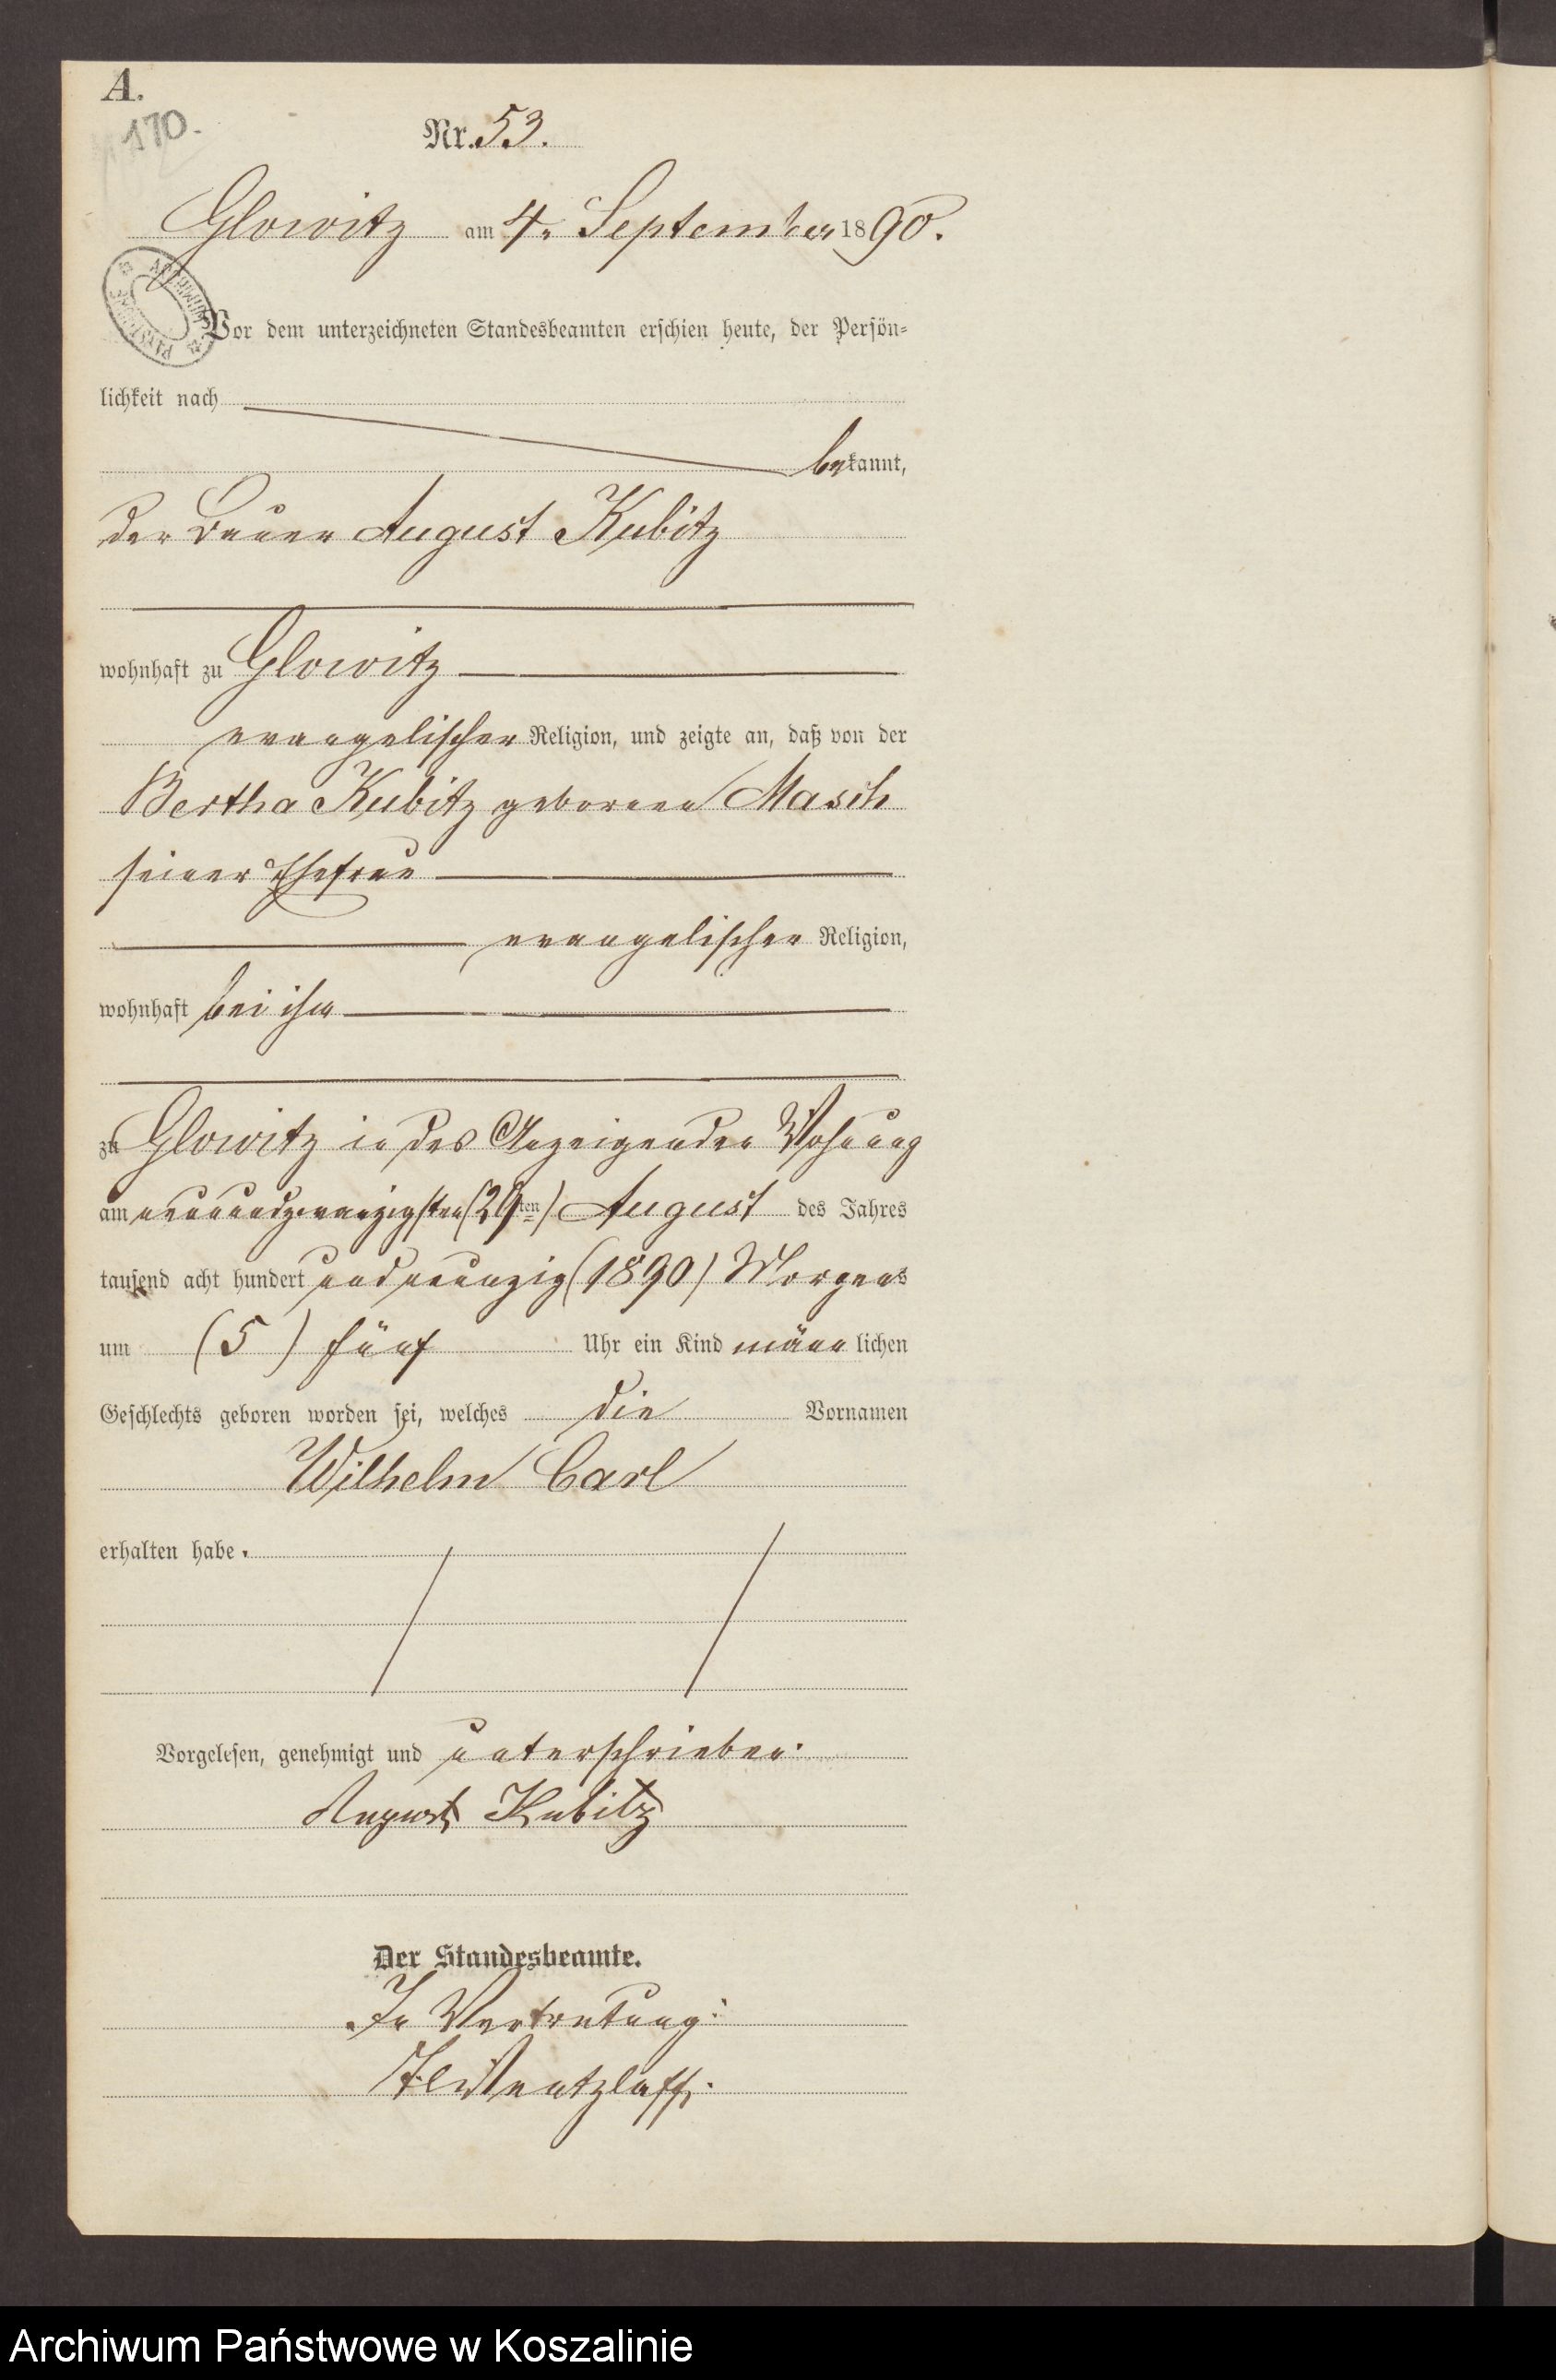 A.
170.
Nr. 53.
Glowitz am 4. September 1890.
Vor dem unterzeichneten Standesbeamten erschien heute, der Persön-
lichkeit nach
bekannt,
der Bauer August Kubitz
wohnhaft zu Glowitz
evangelischer Religion, und zeigte an, daß von der
Bertha Kubitz geborenen Masch
seiner Ehefrau
evangelischer Religion,
wohnhaft bei ihm
zu Glowitz in des Anzeigenden Wohnung
am neunundzwanzigsten (29ten) August des Jahres
tausend acht hundert und neunzig (1890) Morgens
um (5) fünf Uhr ein Kind männlichen
Geschlechts geboren worden sei, welches die Vornamen
Wilhelm Carl
erhalten habe.
Vorgelesen, genehmigt und unterschrieben.
August Kubitz
Der Standesbeamte.
In Vertretung:
Wentzlaff.
Archiwum Państwowe w Koszalinie